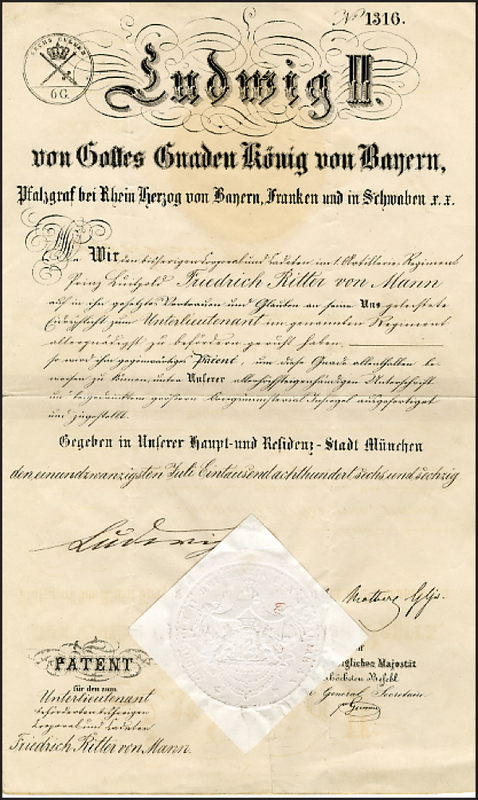 No 1316.
SECHS GULDEN
6 G.
Ludwig II.
von Gottes Gnaden König von Bayern,
Pfalzgraf bei Rhein Herzog von Bayern, Franken und in Schwaben x. x.
Da Wir den bisherigen Corporal und Cadeten im 1. Artillerie-Regiment
Prinz Luitpold Friedrich Ritter von Mann
auf in ihn gesetztes Vertrauen und Glauben an seine Uns geleistete
Eidespflicht zum Unterlieutenant im genannten Regiment
allergnädigst zu befördern geruht haben,
so wird ihm gegenwärtiges Patent, um diese Gnade allenthalben be-
weisen zu können, unter Unserer allerhöchsteigenhändigen Unterschrift
und beigedrucktem größern Kriegsministerial Insiegel ausgefertiget
und zugestellt.
Gegeben in Unserer Haupt- und Residenz-Stadt München
den einundzwanzigsten Juli Eintausend achthundert sechs und sechzig
Ludwig
PATENT
für den zum
Unterlieutenant
beförderten bisherigen
Corporal und Cadeten
Friedrich Ritter von Mann.
niglichen Majestät
höchsten Befehl
General Secretaire